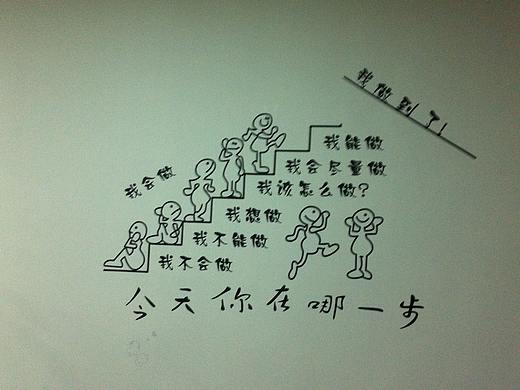 我做到了!
我能做
我会尽量做
我该怎么做?
我会做
我想做
我不能做
我不会做
今天你在哪一步